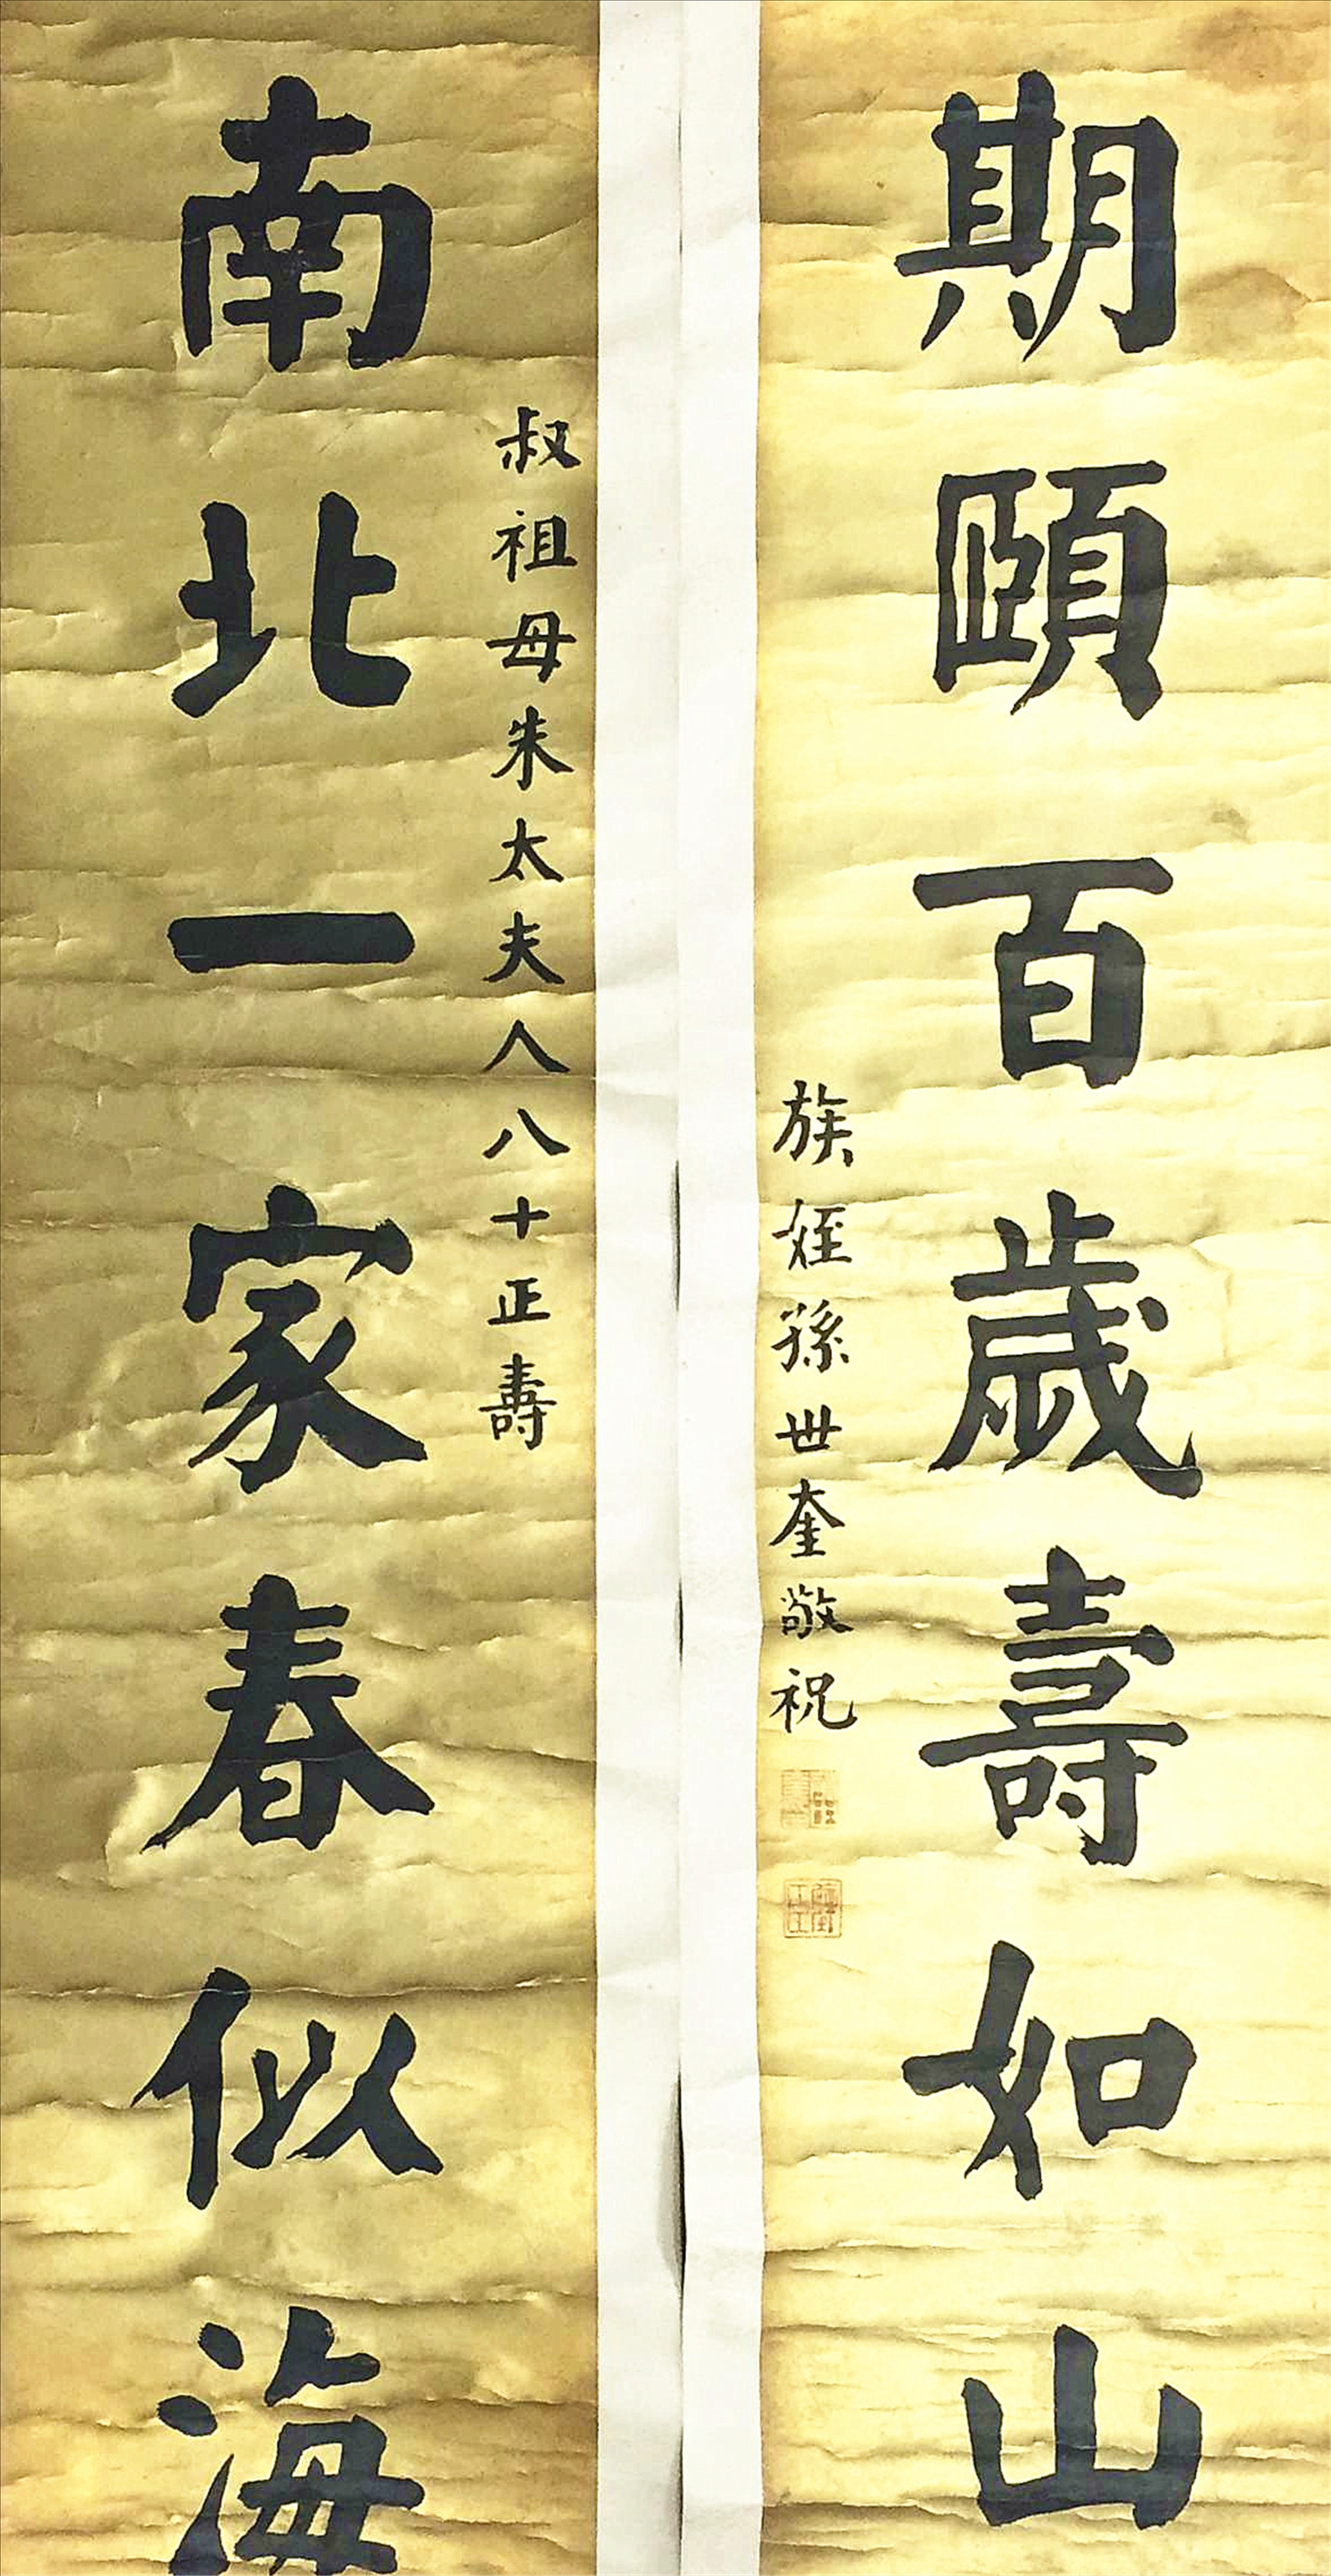 期頤百歲壽如山
族姪孫世奎敬祝
叔祖母朱太夫人八十正壽
南北一家春似海